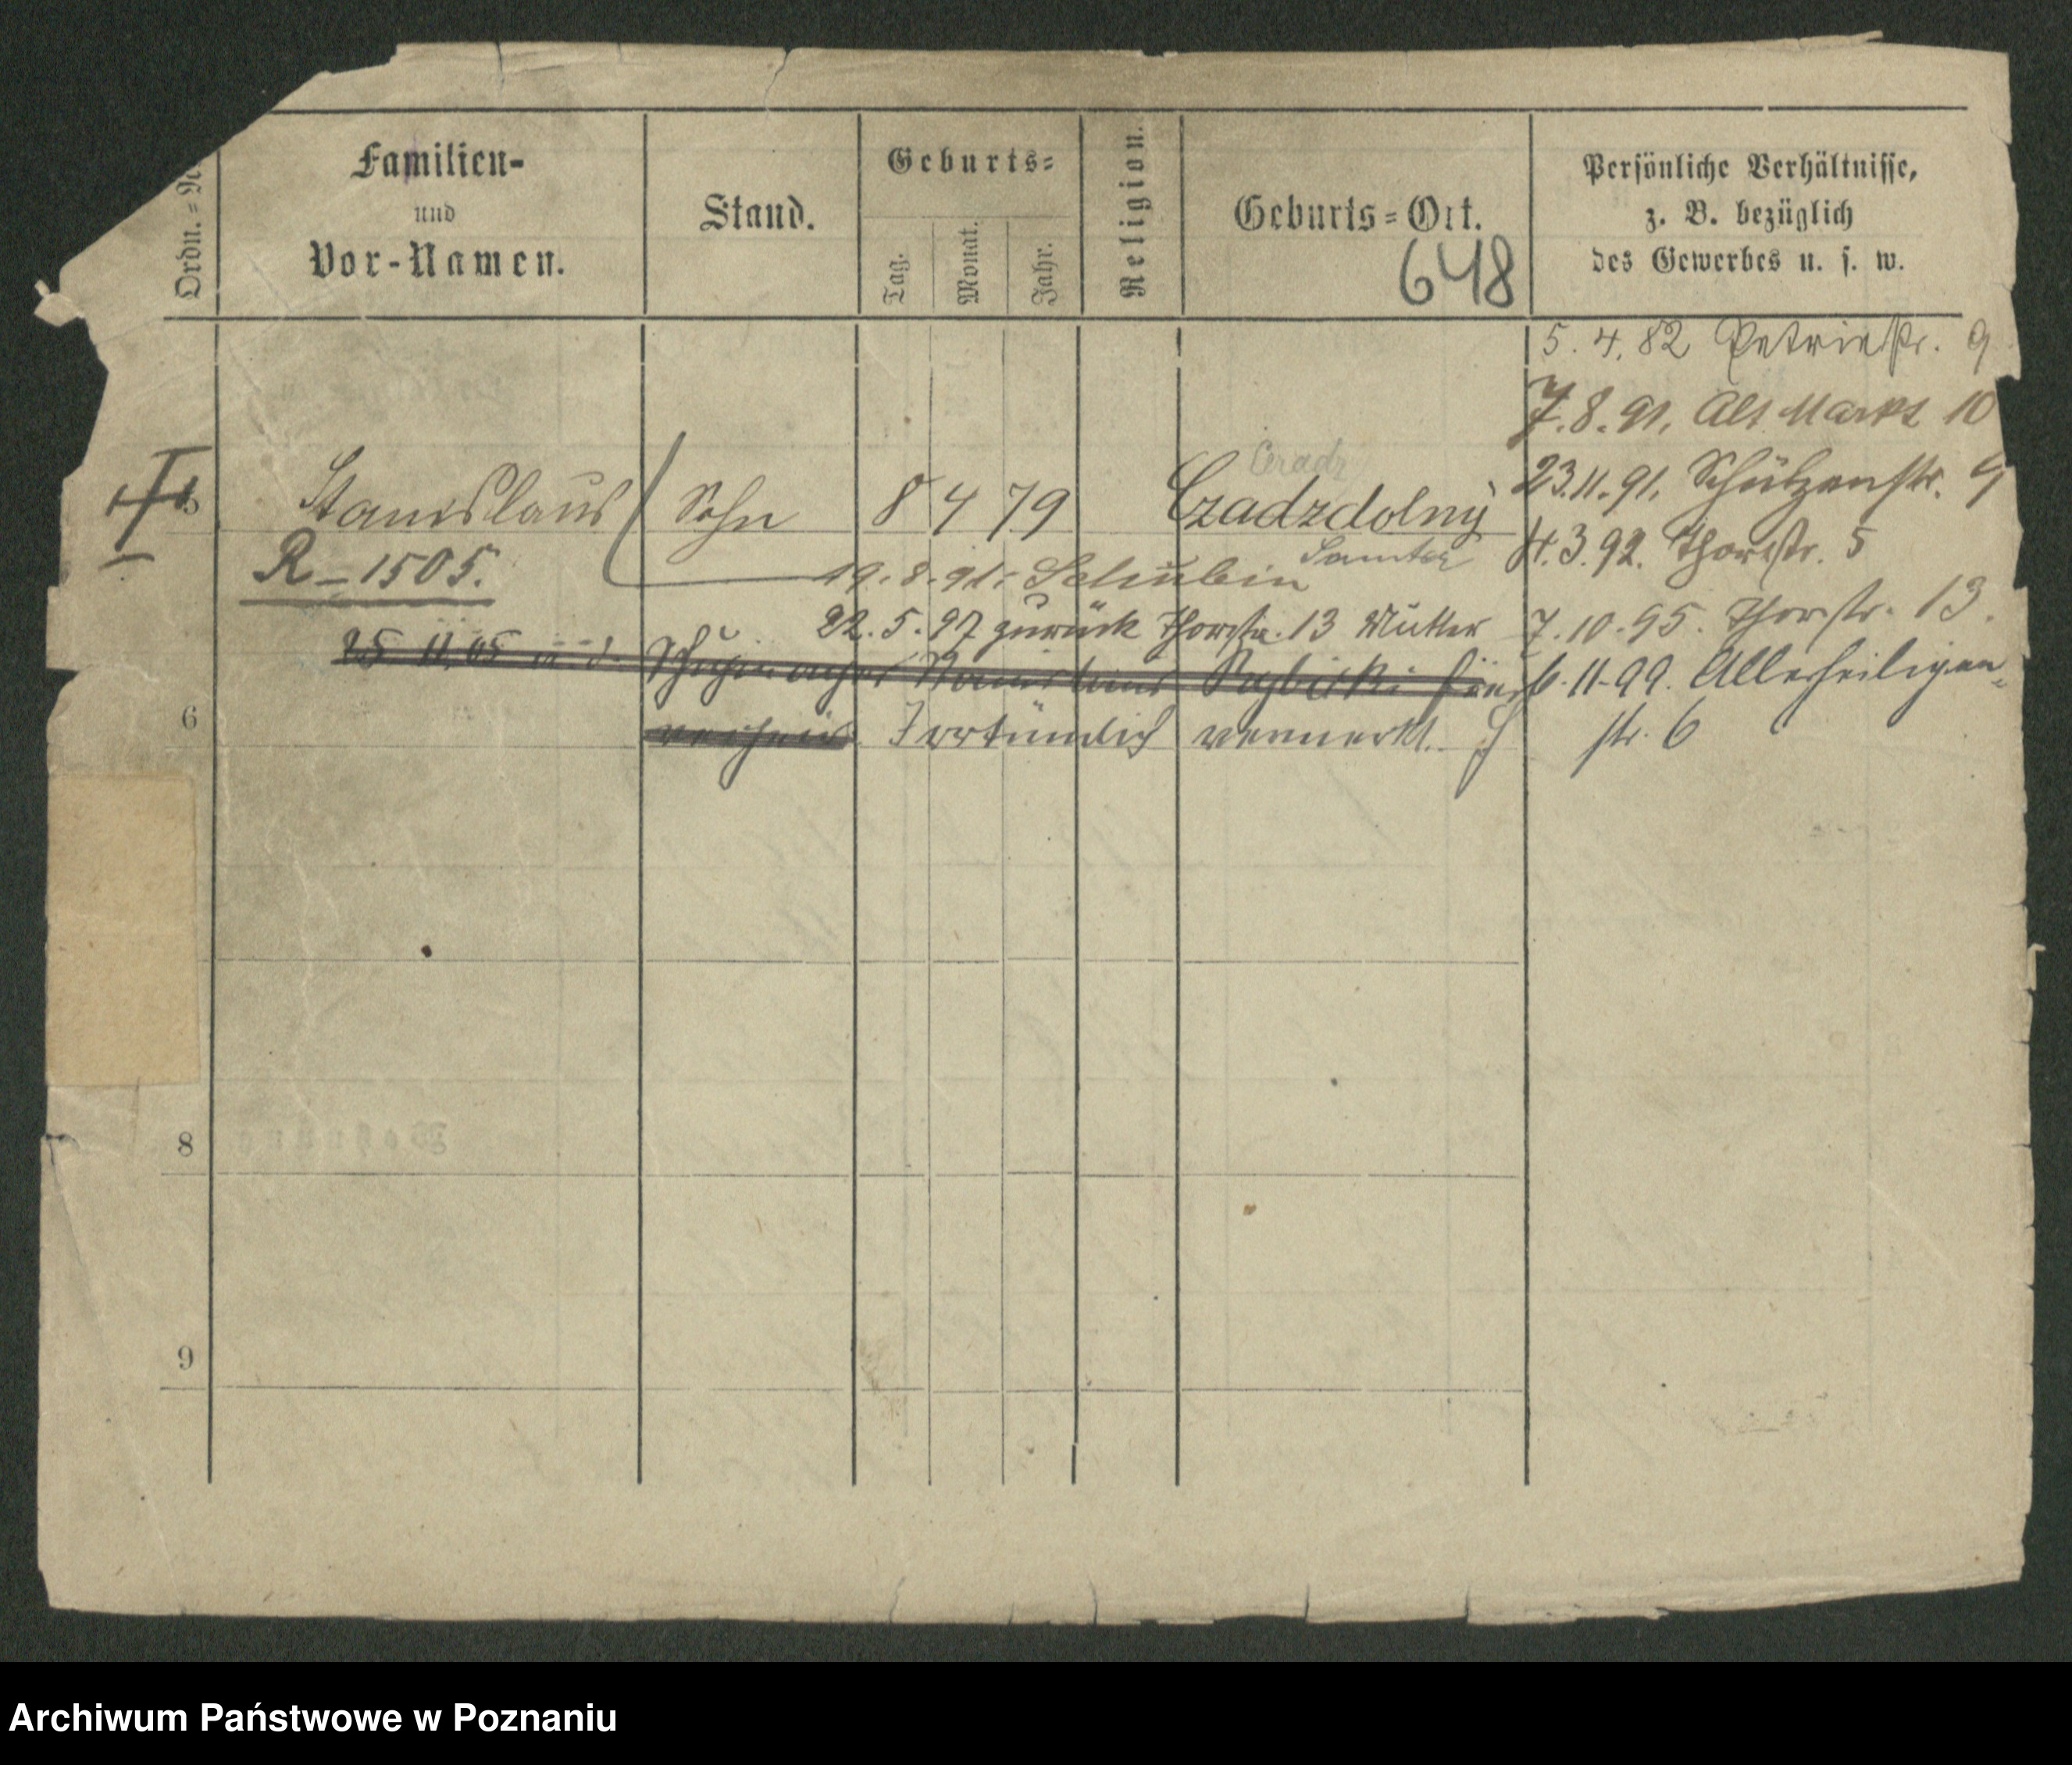 Ordn.=N
Familien-
und
Vor-Namen.
Stand.
Geburts=
Tag.
Monat.
Jahr.
Religion.
Geburts=Ort.
648
Persönliche Verhältnisse,
z. B. bezüglich
des Gewerbes u. s. w.
5. 4. 82 Petristr. 9
7. 8. 91. Alt Markt 10
23.11.91. Schützenstr.
4.3.92. Thorstr. 5
7.10.95. Thorstr. 13.
6.11.99. Allerheiligen=
str. 6
Ceradz
Stanislaus Sohn 8 4 79 Czadzdolny
Samter
R-1505.
19.8.91. Schubin
22.5.97 zurück Thorstr. 13 Mutter
25 11.05 Stanislaus
6
Irrtümlich vermerkt.
8
9
Archiwum Państwowe w Poznaniu